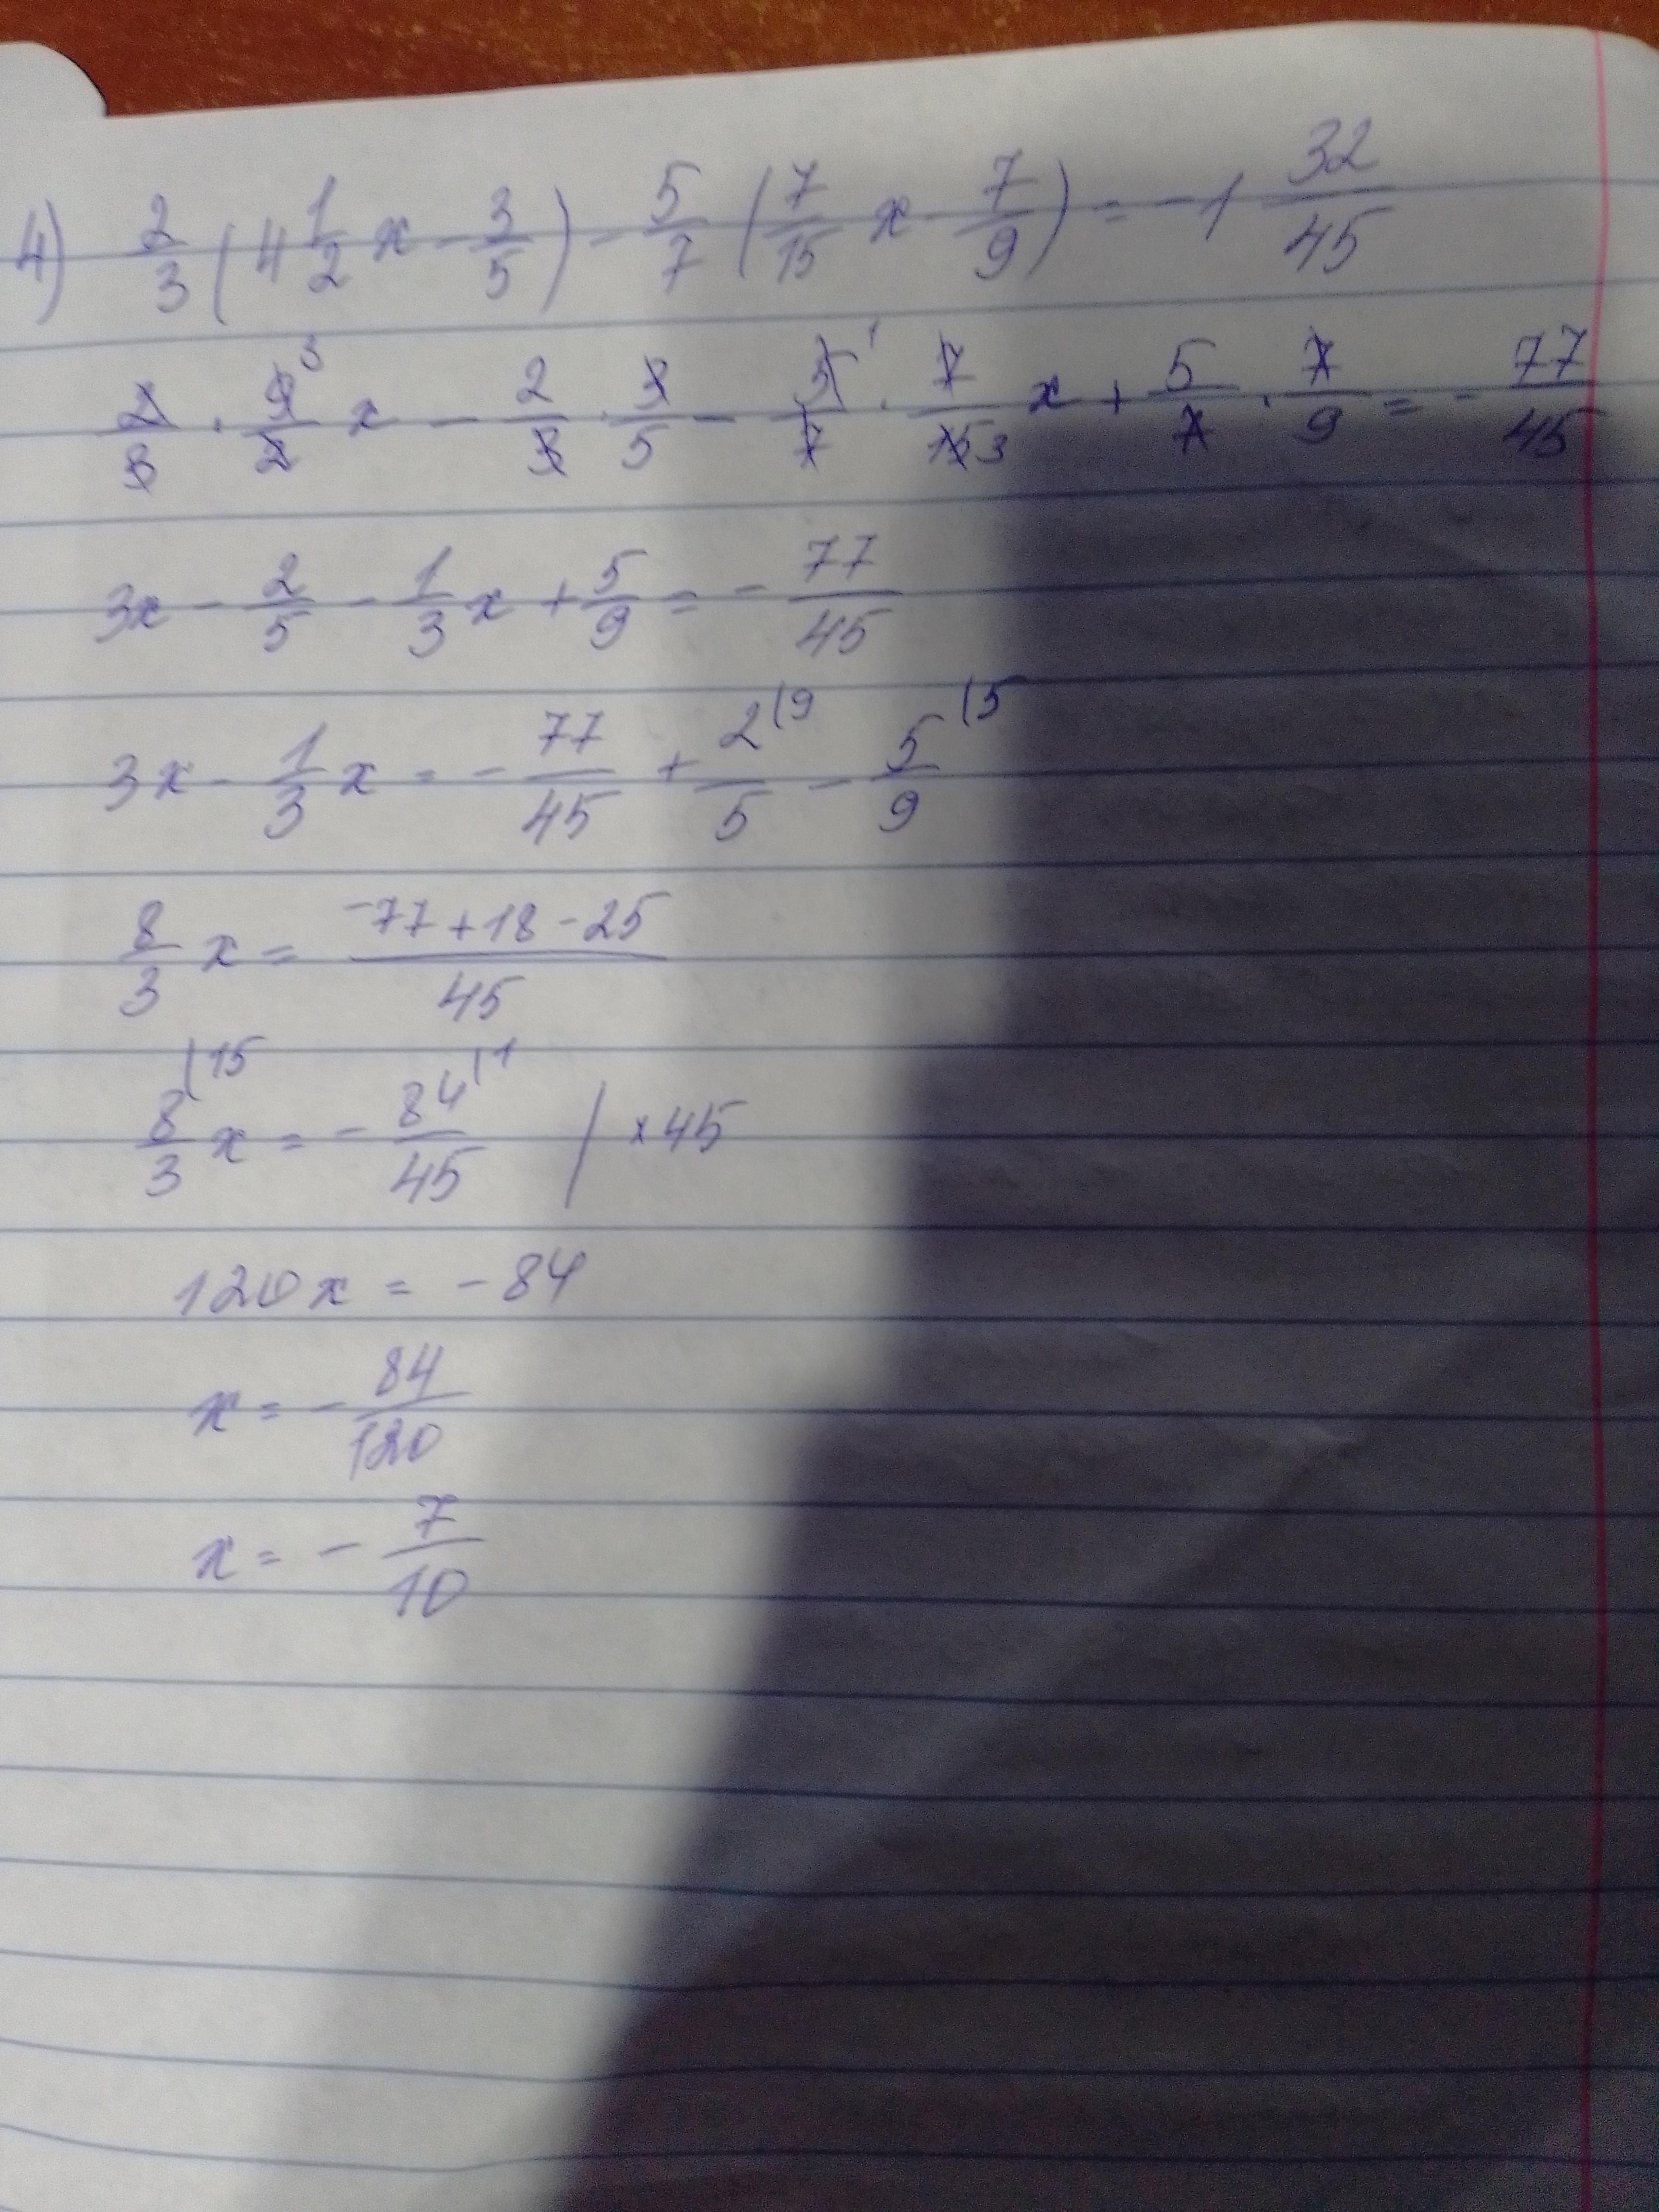 4) 2/3 (4 1/2 x - 3/5) - 5/7 (7/15 x - 7/9) = -1 32/45
2/3 · 9/2 ³ x - 2/3 · 3/5 - 5/7 ¹ · 7/15 3 x + 5/7 · 7/9 = - 77/45
3x - 2/5 - 1/3 x + 5/9 = - 77/45
3x - 1/3 x = - 77/45 + 2/5 (9 - 5/9 (5
8/3 x = (-77 + 18 - 25)/45
8/3 (15 x = - 84/45 (1 / ×45
120x = -84
x = - 84/120
x = - 7/10